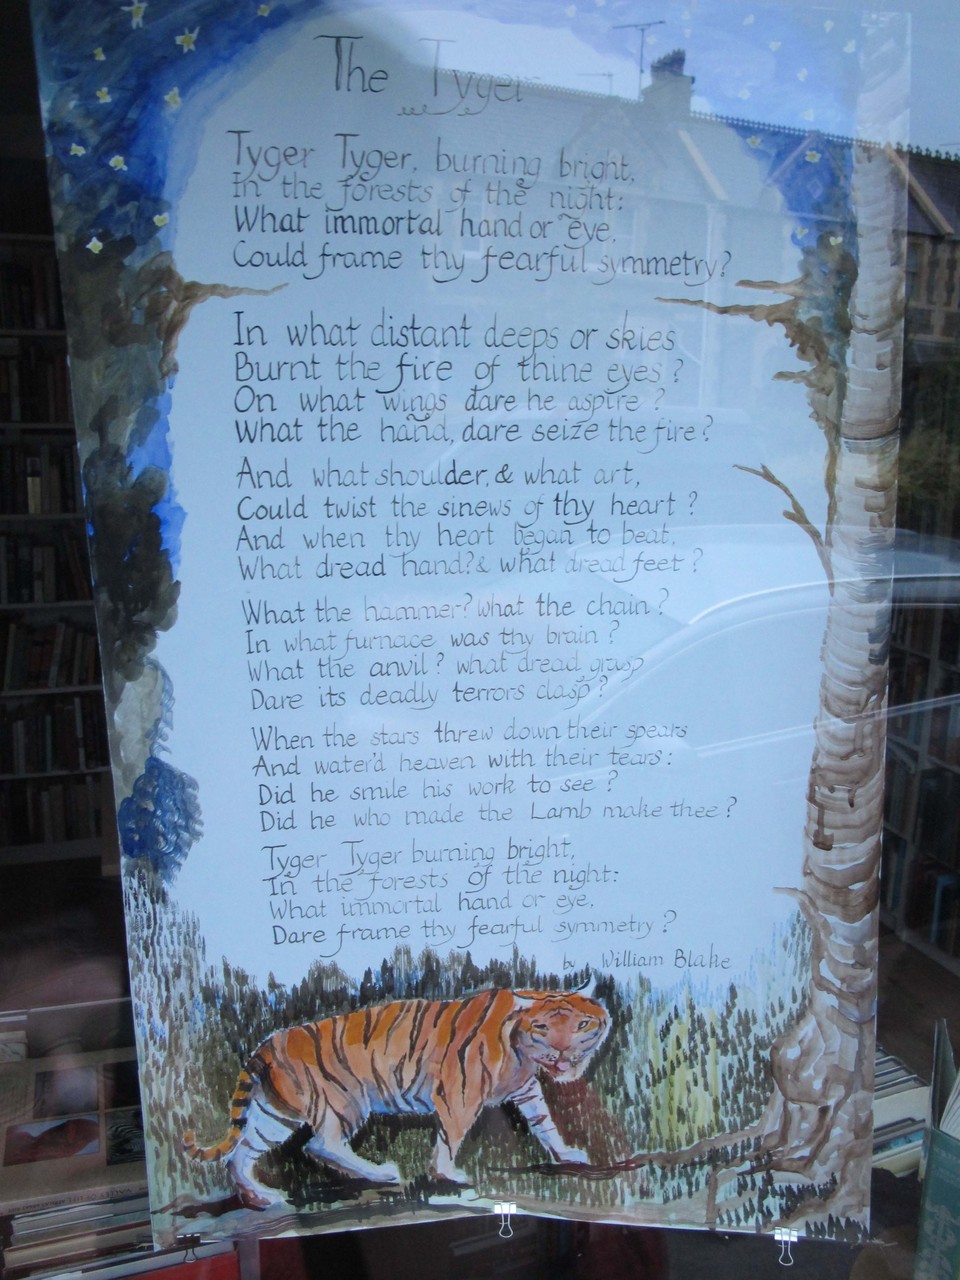 The Tyger
Tyger Tyger, burning bright,
In the forests of the night:
What immortal hand or eye,
Could frame thy fearful symmetry?
In what distant deeps or skies
Burnt the fire of thine eyes?
On what wings dare he aspire?
What the hand, dare seize the fire?
And what shoulder, & what art,
Could twist the sinews of thy heart?
And when thy heart began to beat,
What dread hand? & what dread feet?
What the hammer? what the chain?
In what furnace was thy brain?
What the anvil? what dread grasp
Dare its deadly terrors clasp?
When the stars threw down their spears
And water'd heaven with their tears:
Did he smile his work to see?
Did he who made the Lamb make thee?
Tyger Tyger burning bright,
In the forests of the night:
What immortal hand or eye,
Dare frame thy fearful symmetry?
by William Blake